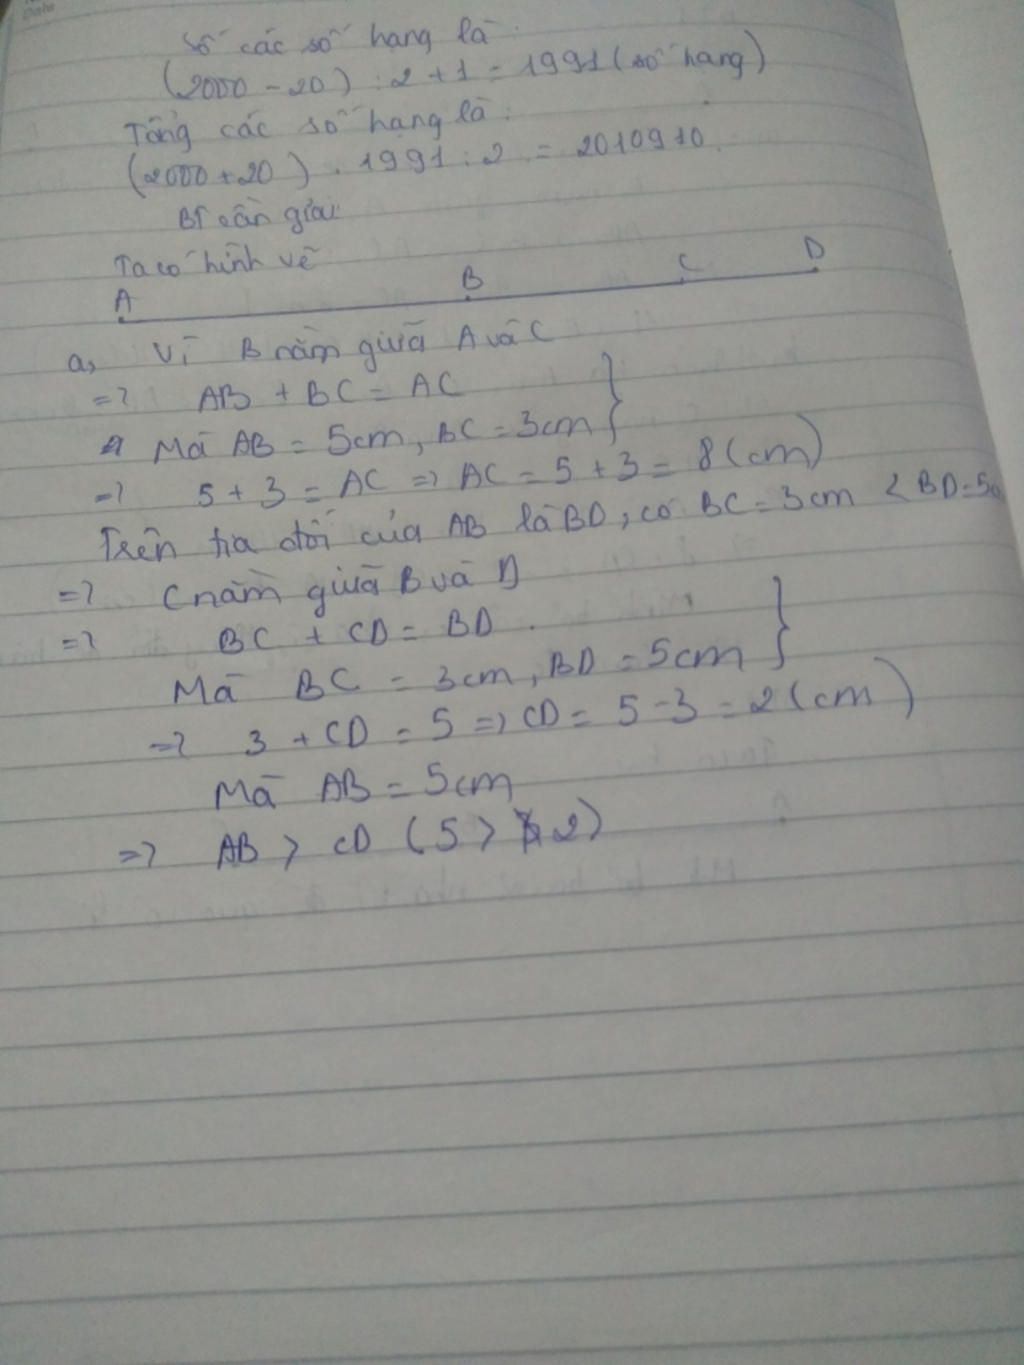 Date
Số các số hạng là:
(2000 - 20) : 2 + 1 = 1991 (số hạng)
Tổng các số hạng là:
(2000 + 20) . 1991 : 2 = 2010910.
Bài cần giải
Ta có hình vẽ
A B C D
a, Vì B nằm giữa A và C
=> AB + BC = AC
Mà AB = 5cm, BC = 3cm }
=> 5 + 3 = AC => AC = 5 + 3 = 8 (cm)
Trên tia đối của AB là BD, có BC = 3cm < BD = 5c
=> C nằm giữa B và D
=> BC + CD = BD.
Mà BC = 3cm, BD = 5cm }
=> 3 + CD = 5 => CD = 5 - 3 = 2 (cm)
Mà AB = 5cm
=> AB > CD (5 > 2)